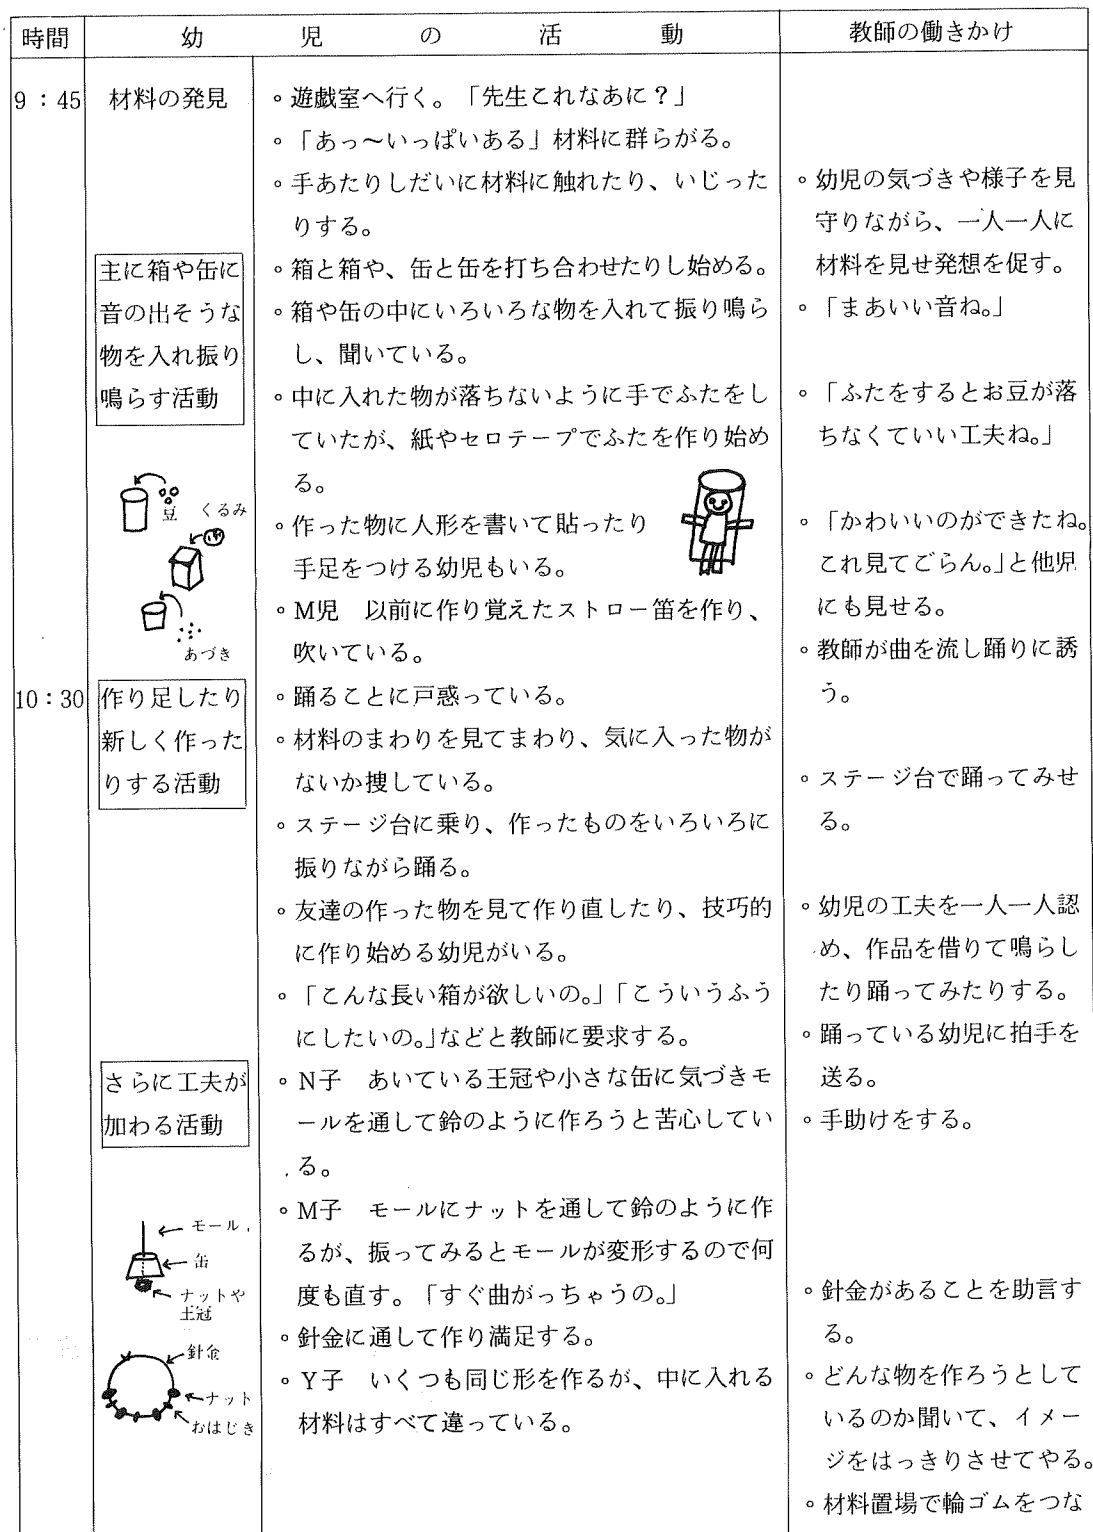 時間
幼児の活動
教師の働きかけ
9：45
材料の発見
。遊戯室へ行く。「先生これなあに？」
。「あっ～いっぱいある」材料に群らがる。
。手あたりしだいに材料に触れたり、いじった
りする。
主に箱や缶に
音の出そうな
物を入れ振り
鳴らす活動
。箱と箱や、缶と缶を打ち合わせたりし始める。
。箱や缶の中にいろいろな物を入れて振り鳴ら
し、聞いている。
。中に入れた物が落ちないように手でふたをし
ていたが、紙やセロテープでふたを作り始め
る。
豆
くるみ
あづき
。作った物に人形を書いて貼ったり
手足をつける幼児もいる。
。M児　以前に作り覚えたストロー笛を作り、
吹いている。
。幼児の気づきや様子を見
守りながら、一人一人に
材料を見せ発想を促す。
。「まあいい音ね。」
。「ふたをするとお豆が落
ちなくていい工夫ね。」
。「かわいいのができたね。
これ見てごらん。」と他児
にも見せる。
。教師が曲を流し踊りに誘
う。
10：30
作り足したり
新しく作った
りする活動
。踊ることに戸惑っている。
。材料のまわりを見てまわり、気に入った物が
ないか捜している。
。ステージ台に乗り、作ったものをいろいろに
振りながら踊る。
。友達の作った物を見て作り直したり、技巧的
に作り始める幼児がいる。
。「こんな長い箱が欲しいの。」「こういうふう
にしたいの。」などと教師に要求する。
。ステージ台で踊ってみせ
る。
。幼児の工夫を一人一人認
め、作品を借りて鳴らし
たり踊ってみたりする。
。踊っている幼児に拍手を
送る。
。手助けをする。
さらに工夫が
加わる活動
。N子　あいている王冠や小さな缶に気づきモ
ールを通して鈴のように作ろうと苦心してい
る。
。M子　モールにナットを通して鈴のように作
るが、振ってみるとモールが変形するので何
度も直す。「すぐ曲がっちゃうの。」
。針金に通して作り満足する。
。Y子　いくつも同じ形を作るが、中に入れる
材料はすべて違っている。
モール
缶
ナットや
王冠
針金
ナット
おはじき
。針金があることを助言す
る。
。どんな物を作ろうとして
いるのか聞いて、イメー
ジをはっきりさせてやる。
。材料置場で輪ゴムをつな